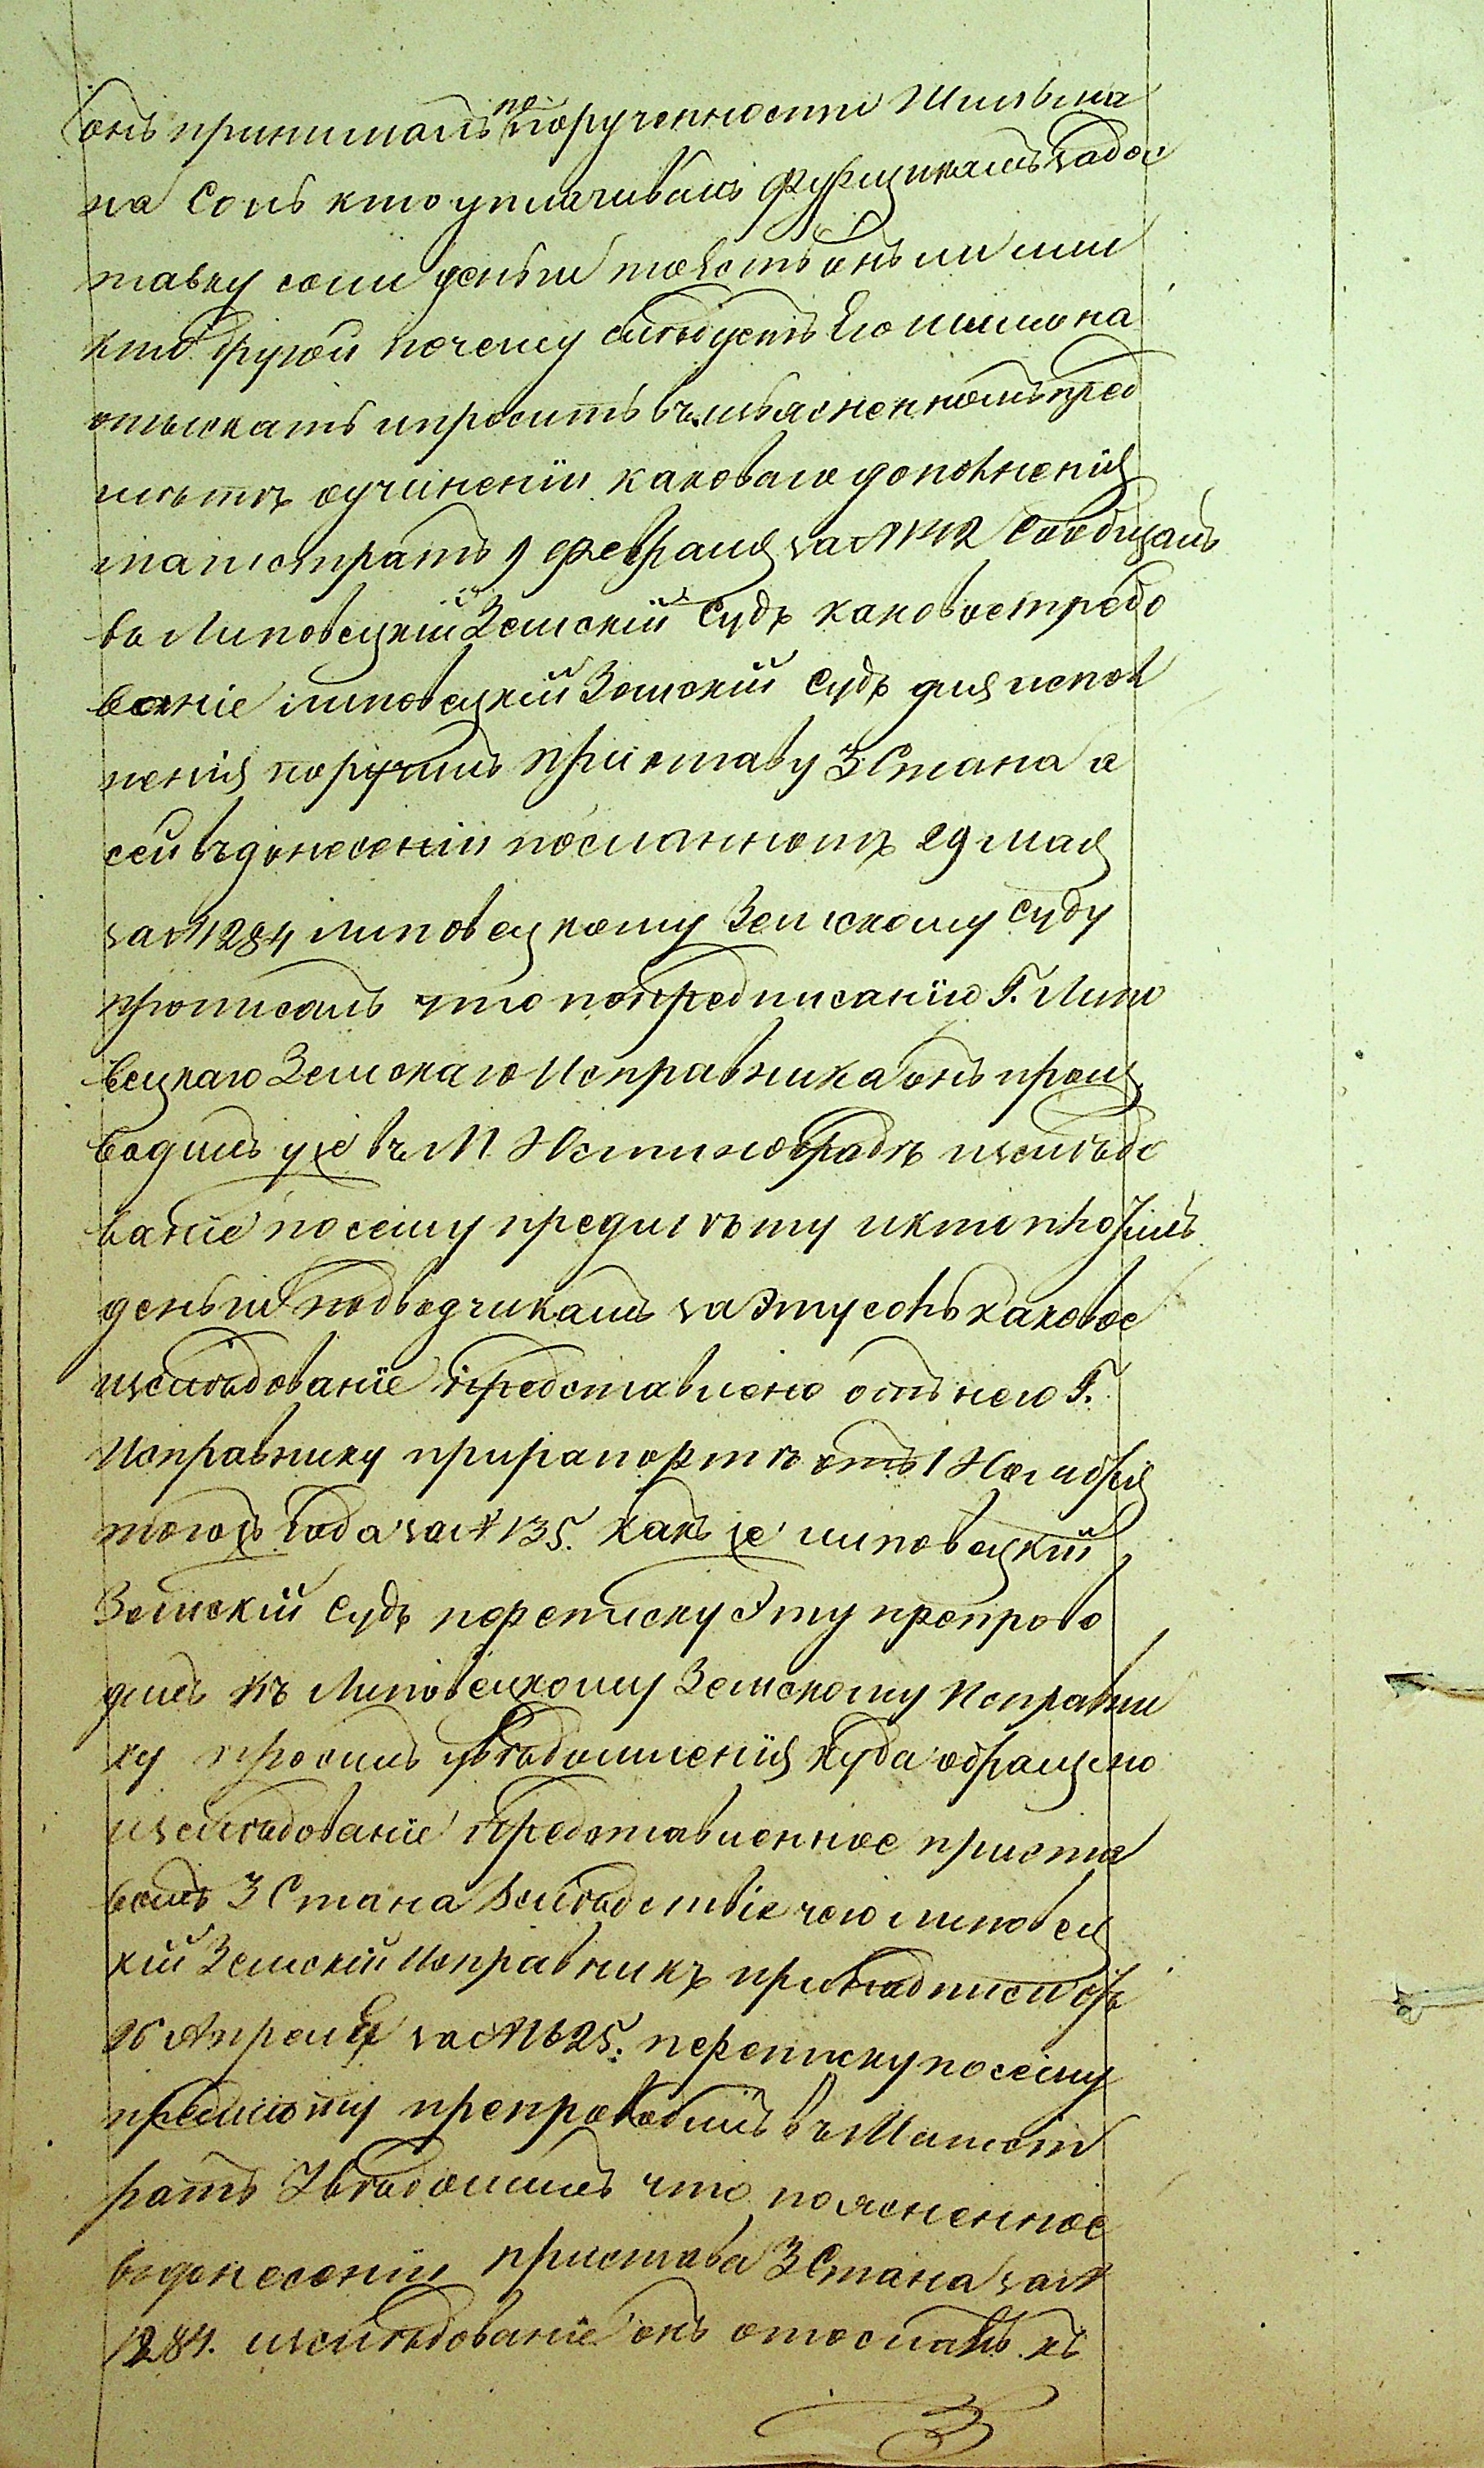 онъ принималъ по порученности Шимъна
на Соль кто уплачивалъ фурщикамъ за дос
тавку соли деньги тоестъ онъ ли или
кто другой почему слѣдуетъ Его шимона
отыскать и просить въ изъясненномъ пред
мѣтѣ оучиненіи каковаго дополненія
магистратъ 9 февраля за № 142 Сообщалъ
въ Липовецкій Земскій Судъ каковое требо
ваніе липовецкій Земскій Судъ для испол
ненія поручилъ приставу 3 Стана а
сей въ донесеніи посланномъ 29 мая
за № 1284 липовецкому Земскому Суду
прописалъ что по предписанію Г. Липо
вецкаго Земскаго Исправника онъ произ
водилъ уже въ М. Юстинградѣ изслѣдо
ваніе по сему предмѣту и кто плотилъ
деньги подводчикамъ за Эту соль каковое
изслѣдованіе представлено отъ него Г.
Исправнику при рапортѣ отъ 1 Ноября
тогожъ Года за № 135. какъ же липовецкій
Земскій Судъ переписку Эту препрово
дилъ къ Липовецкому Земскому Исправни
ку просилъ увѣдомленія куда обращено
изслѣдованіе представленное приста
вомъ 3 Стана вслѣдствіе чего липовец
кій Земскій Исправникъ при надписи отъ
26 Апреля за № 1625. переписку по сему
предмѣту препроводилъ въ Магист
ратъ Увѣдомилъ что поясненное
въ донесеніи пристава 3 Стана за №
1284. изслѣдованіе онъ отослалъ къ